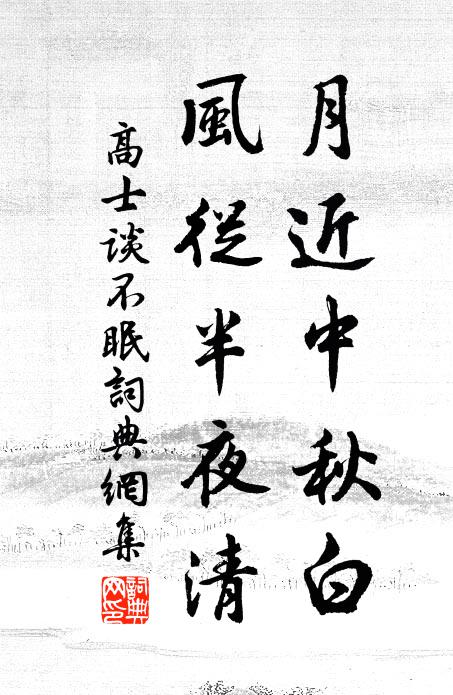 月近中秋白
風從半夜清
高士谈不眠詞典網集
詞典
网印